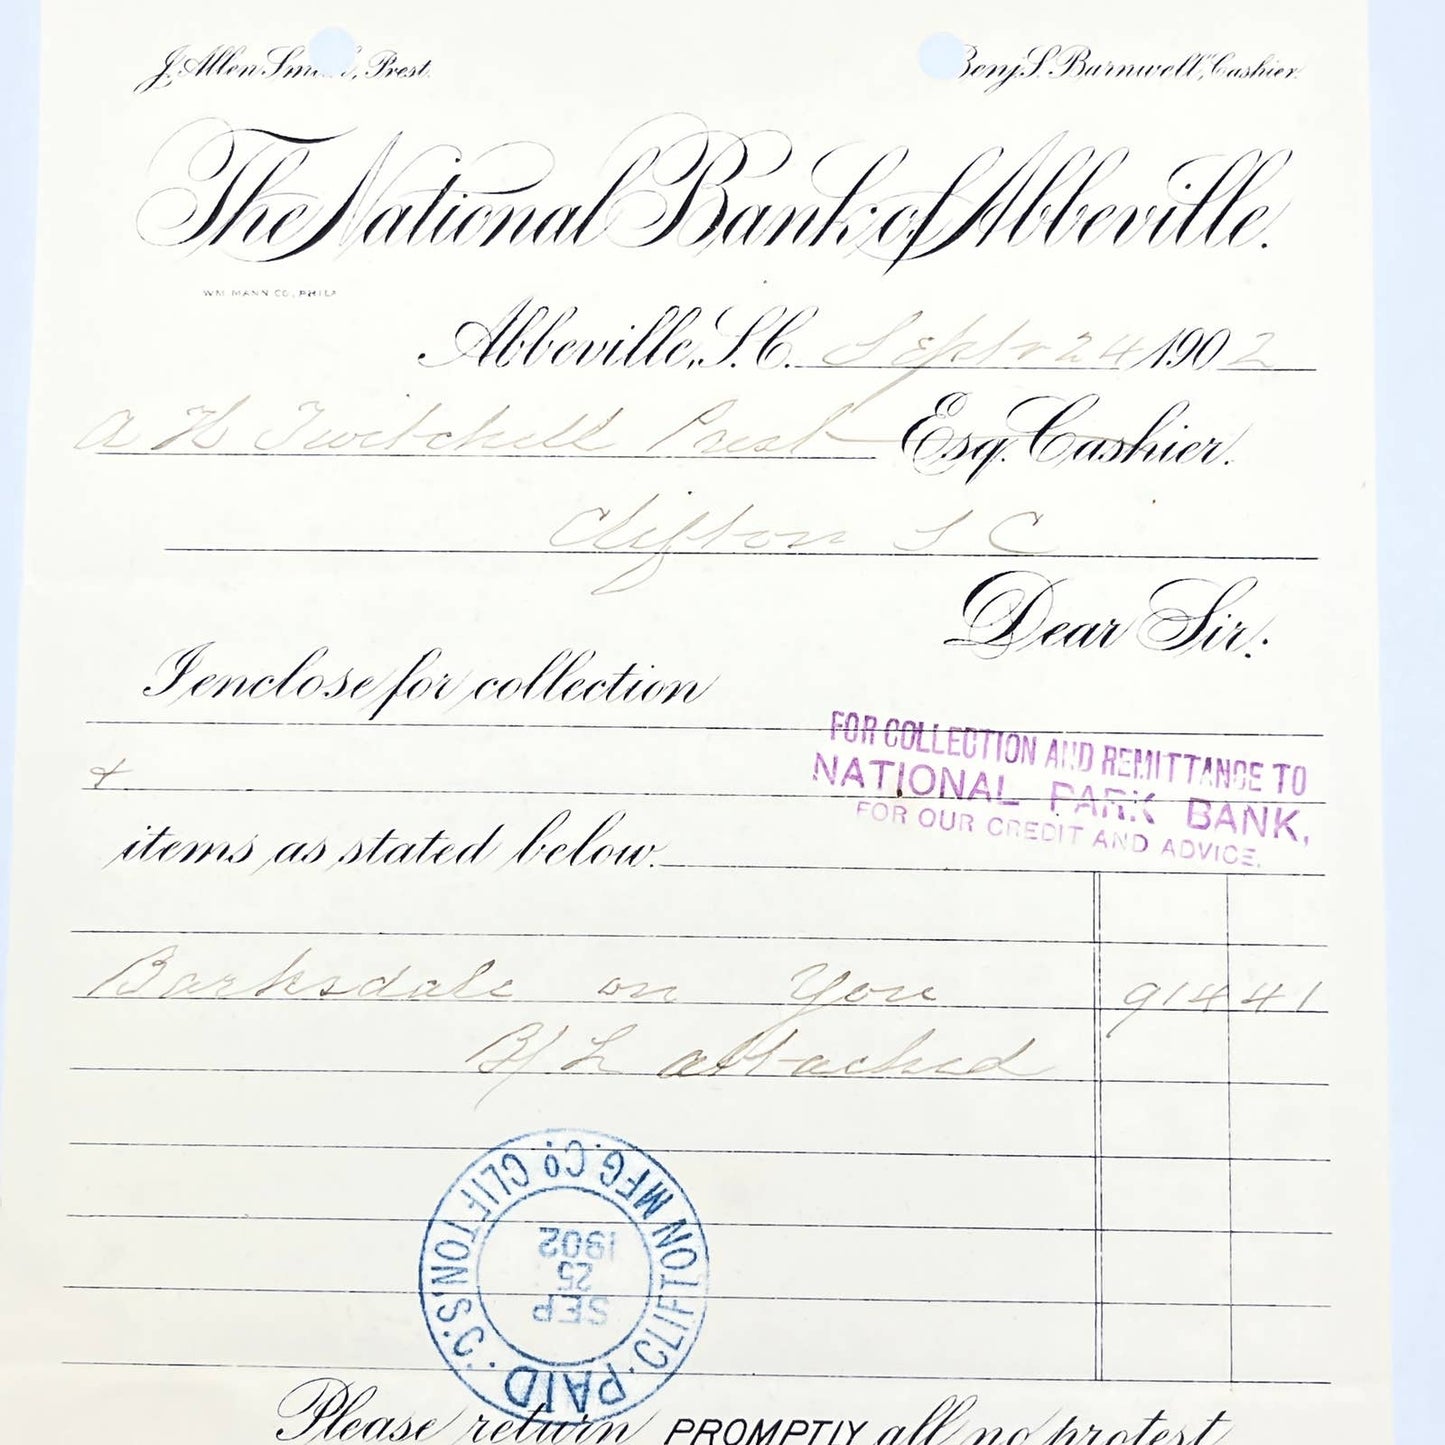 J. Allen Smith, Prest.
Benj. S. Barnwell, Cashier.
The National Bank of Abbeville.
WM. MANN CO., PHILA
Abbeville, S.C. Septr 24 1902
A H Twitchell Prest Esq. Cashier.
Clifton S C
Dear Sir:
I enclose for collection
FOR COLLECTION AND REMITTANCE TO
NATIONAL PARK BANK,
FOR OUR CREDIT AND ADVICE.
+
items as stated below.
Barksdale on You 914 41
B/L attached
CLIFTON MFG. Co. CLIFTON, S.C.
SEP
25
1902
PAID
Please return PROMPTLY all no protest